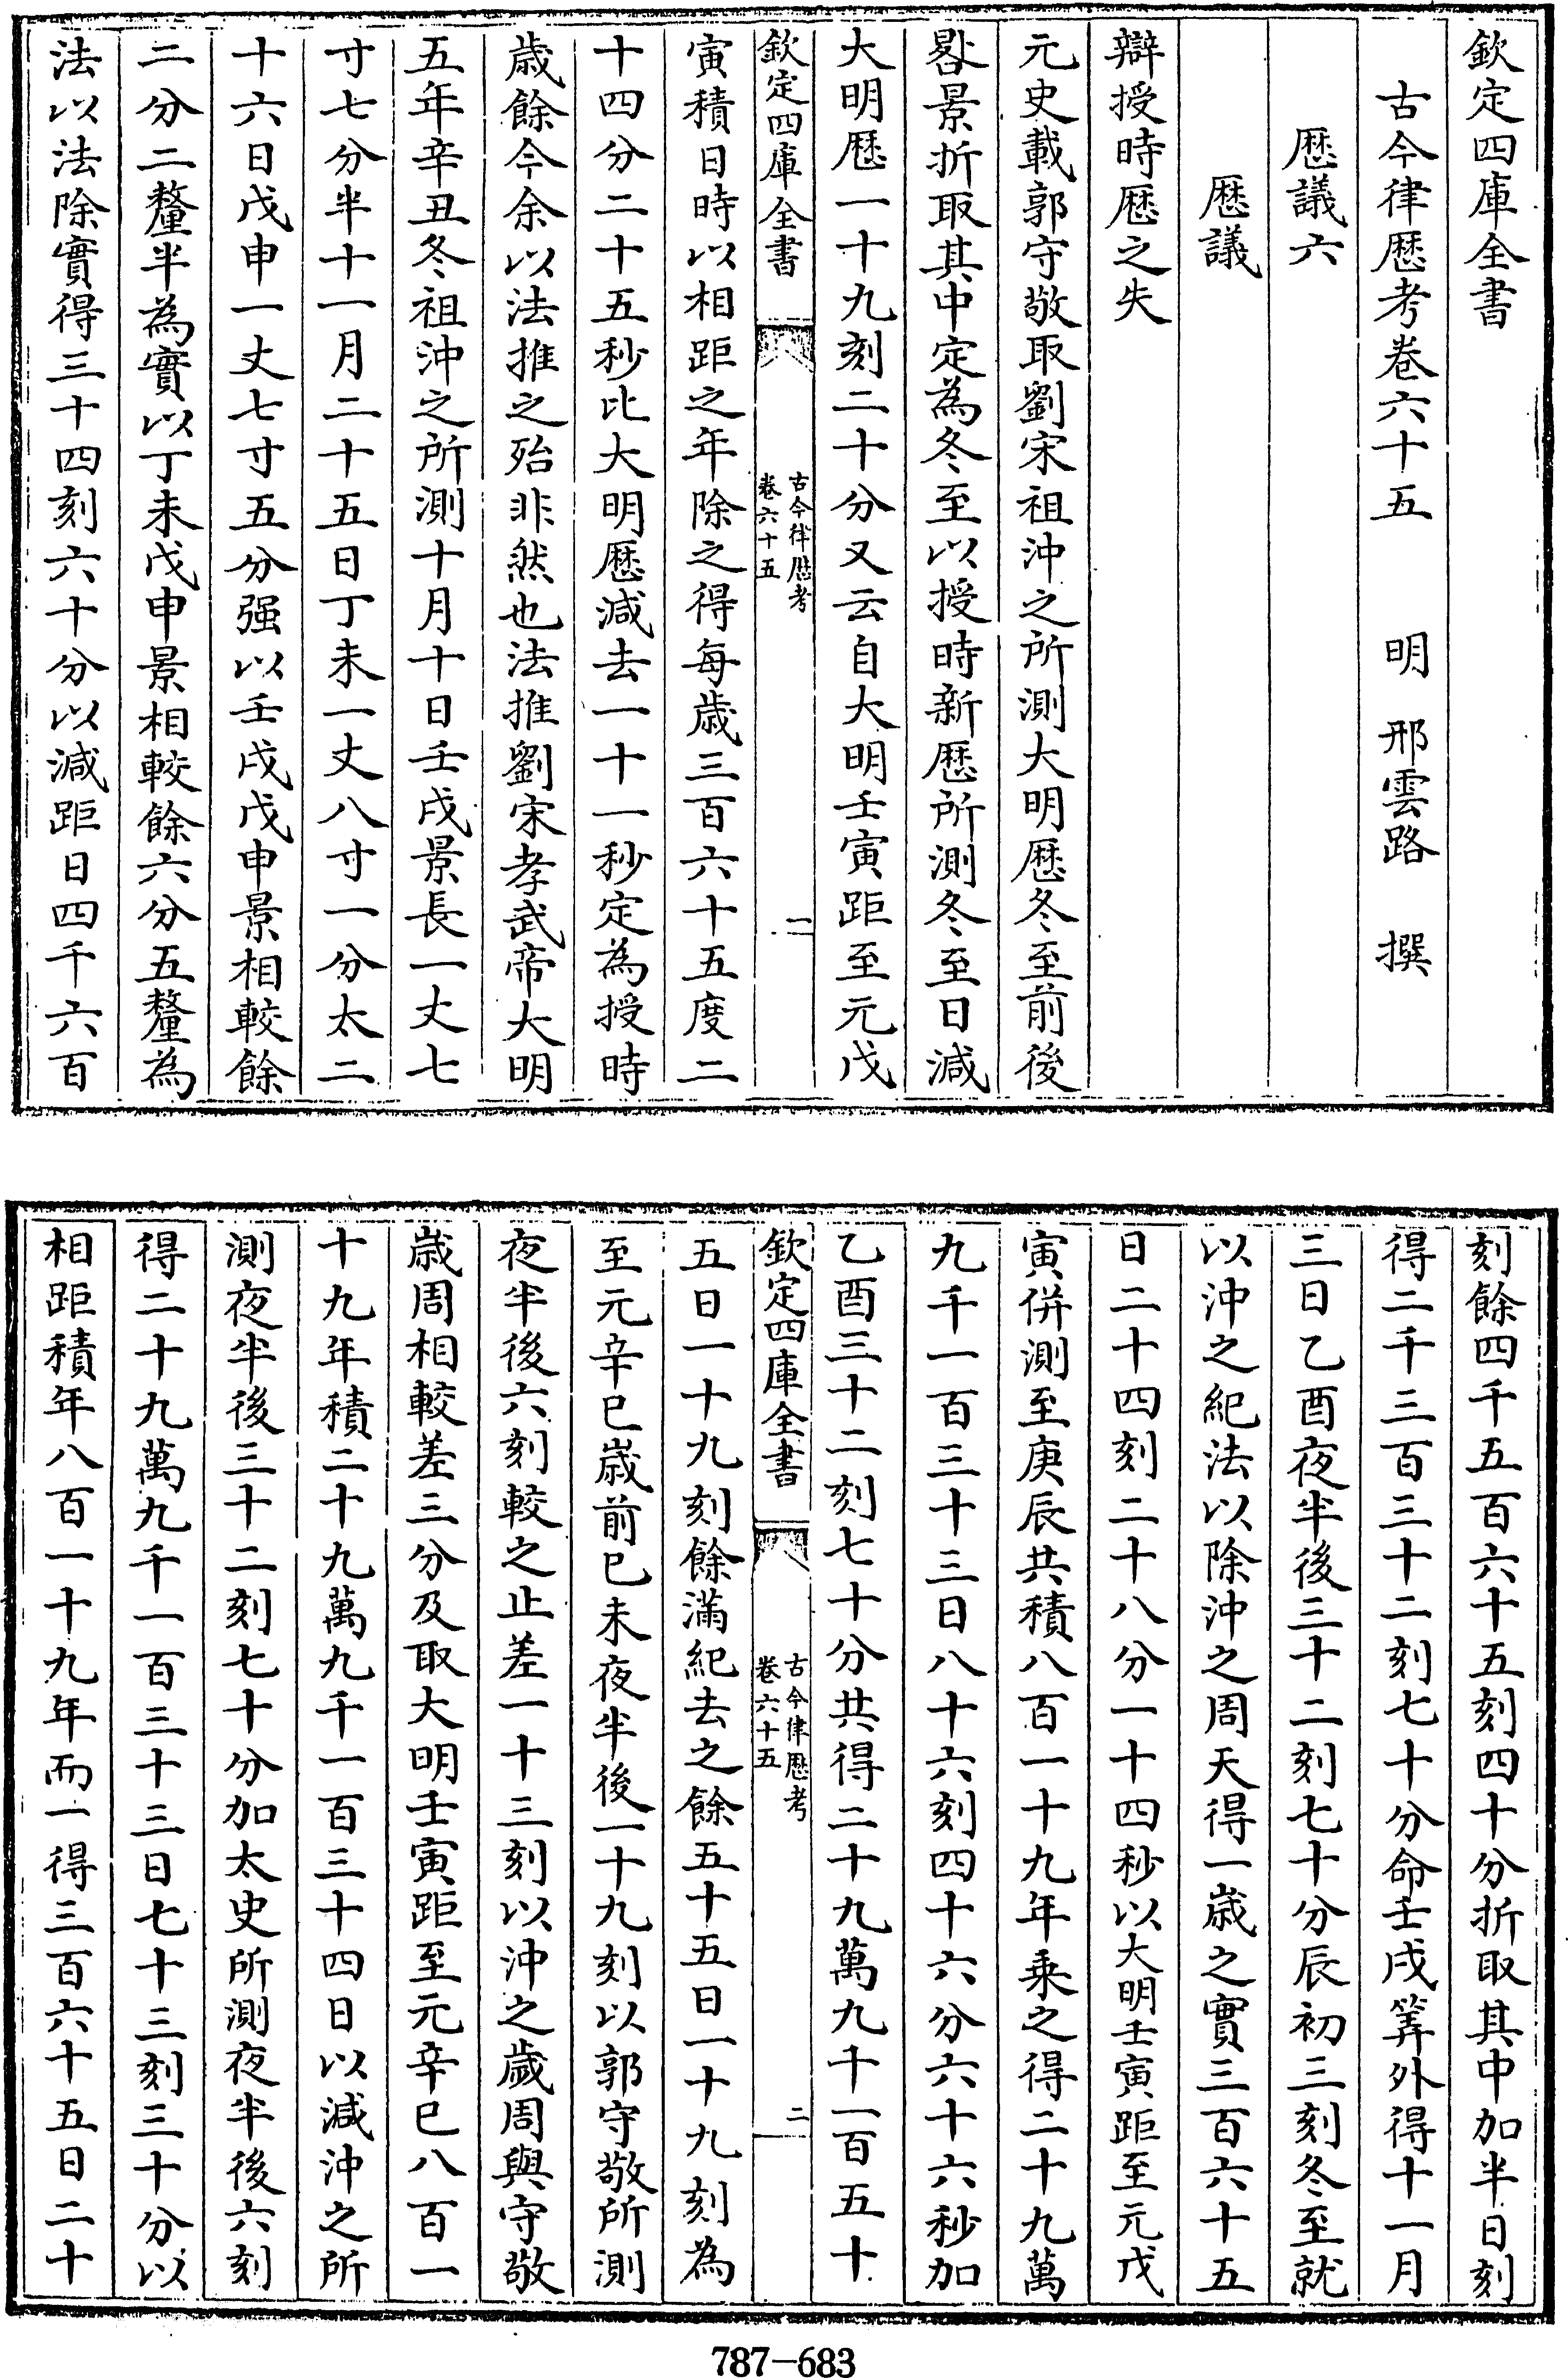 欽定四庫全書
古今律厯考卷六十五　明　邢雲路　撰
厯議六
厯議
辯授時厯之失
元史載郭守敬取劉宋祖沖之所測大明厯冬至前後
晷景折取其中定為冬至以授時新厯所測冬至日減
大明厯一十九刻二十分又云自大明壬寅距至元戊
欽定四庫全書
古今律厯考
卷六十五
一
寅積日時以相距之年除之得每歳三百六十五度二
十四分二十五秒比大明厯減去一十一秒定為授時
歳餘今余以法推之殆非然也法推劉宋孝武帝大明
五年辛丑冬祖沖之所測十月十日壬戌景長一丈七
寸七分半十一月二十五日丁未一丈八寸一分太二
十六日戊申一丈七寸五分强以壬戌戊申景相較餘
二分二釐半為實以丁未戊申景相較餘六分五釐為
法以法除實得三十四刻六十分以減距日四千六百
刻餘四千五百六十五刻四十分折取其中加半日刻
得二千三百三十二刻七十分命壬戌筭外得十一月
三日乙酉夜半後三十二刻七十分辰初三刻冬至就
以沖之紀法以除沖之周天得一歳之實三百六十五
日二十四刻二十八分一十四秒以大明壬寅距至元戊
寅併測至庚辰共積八百一十九年乘之得二十九萬
九千一百三十三日八十六刻四十六分六十六秒加
乙酉三十二刻七十分共得二十九萬九千一百五十
欽定四庫全書
古今律厯考
卷六十五
二
五日一十九刻餘滿紀去之餘五十五日一十九刻為
至元辛巳歳前己未夜半後一十九刻以郭守敬所測
夜半後六刻較之止差一十三刻以沖之歲周與守敬
歳周相較差三分及取大明壬寅距至元辛巳八百一
十九年積二十九萬九千一百三十四日以減沖之所
測夜半後三十二刻七十分加太史所測夜半後六刻
得二十九萬九千一百三十三日七十三刻三十分以
相距積年八百一十九年而一得三百六十五日二十
787-683